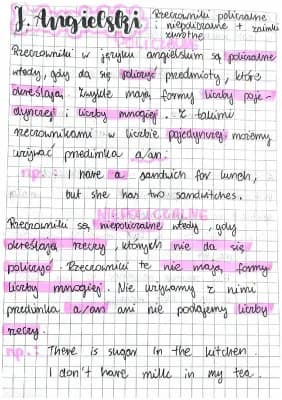 J. Angielski
Rzeczowniki policzalne
niepoliczalne + zaimki
POLICZALNE
Rzeczowniki w języku angielskim są policzalne
wtedy, gdy da się policzyć przedmioty, które
określają. Zwykle mają formy liczby poje-
dynczej i liczby mnogiej. Z takimi
rzeczownikami w liczbie pojedynczej możemy
używać przedimka a/an.
np.: I have a sandwich for lunch,
but she has two sandwitches.
NIEPOLICZALNE
Rzeczowniki są niepoliczalne wtedy, gdy
określają rzeczy, których nie da się
policzyć. Rzeczowniki te nie mają formy
liczby mnogiej. Nie używamy z nimi
przedimka a/an ani nie podajemy liczby
rzeczy.
np.: There is sugar in the kitchen.
I don't have milk in my tea.